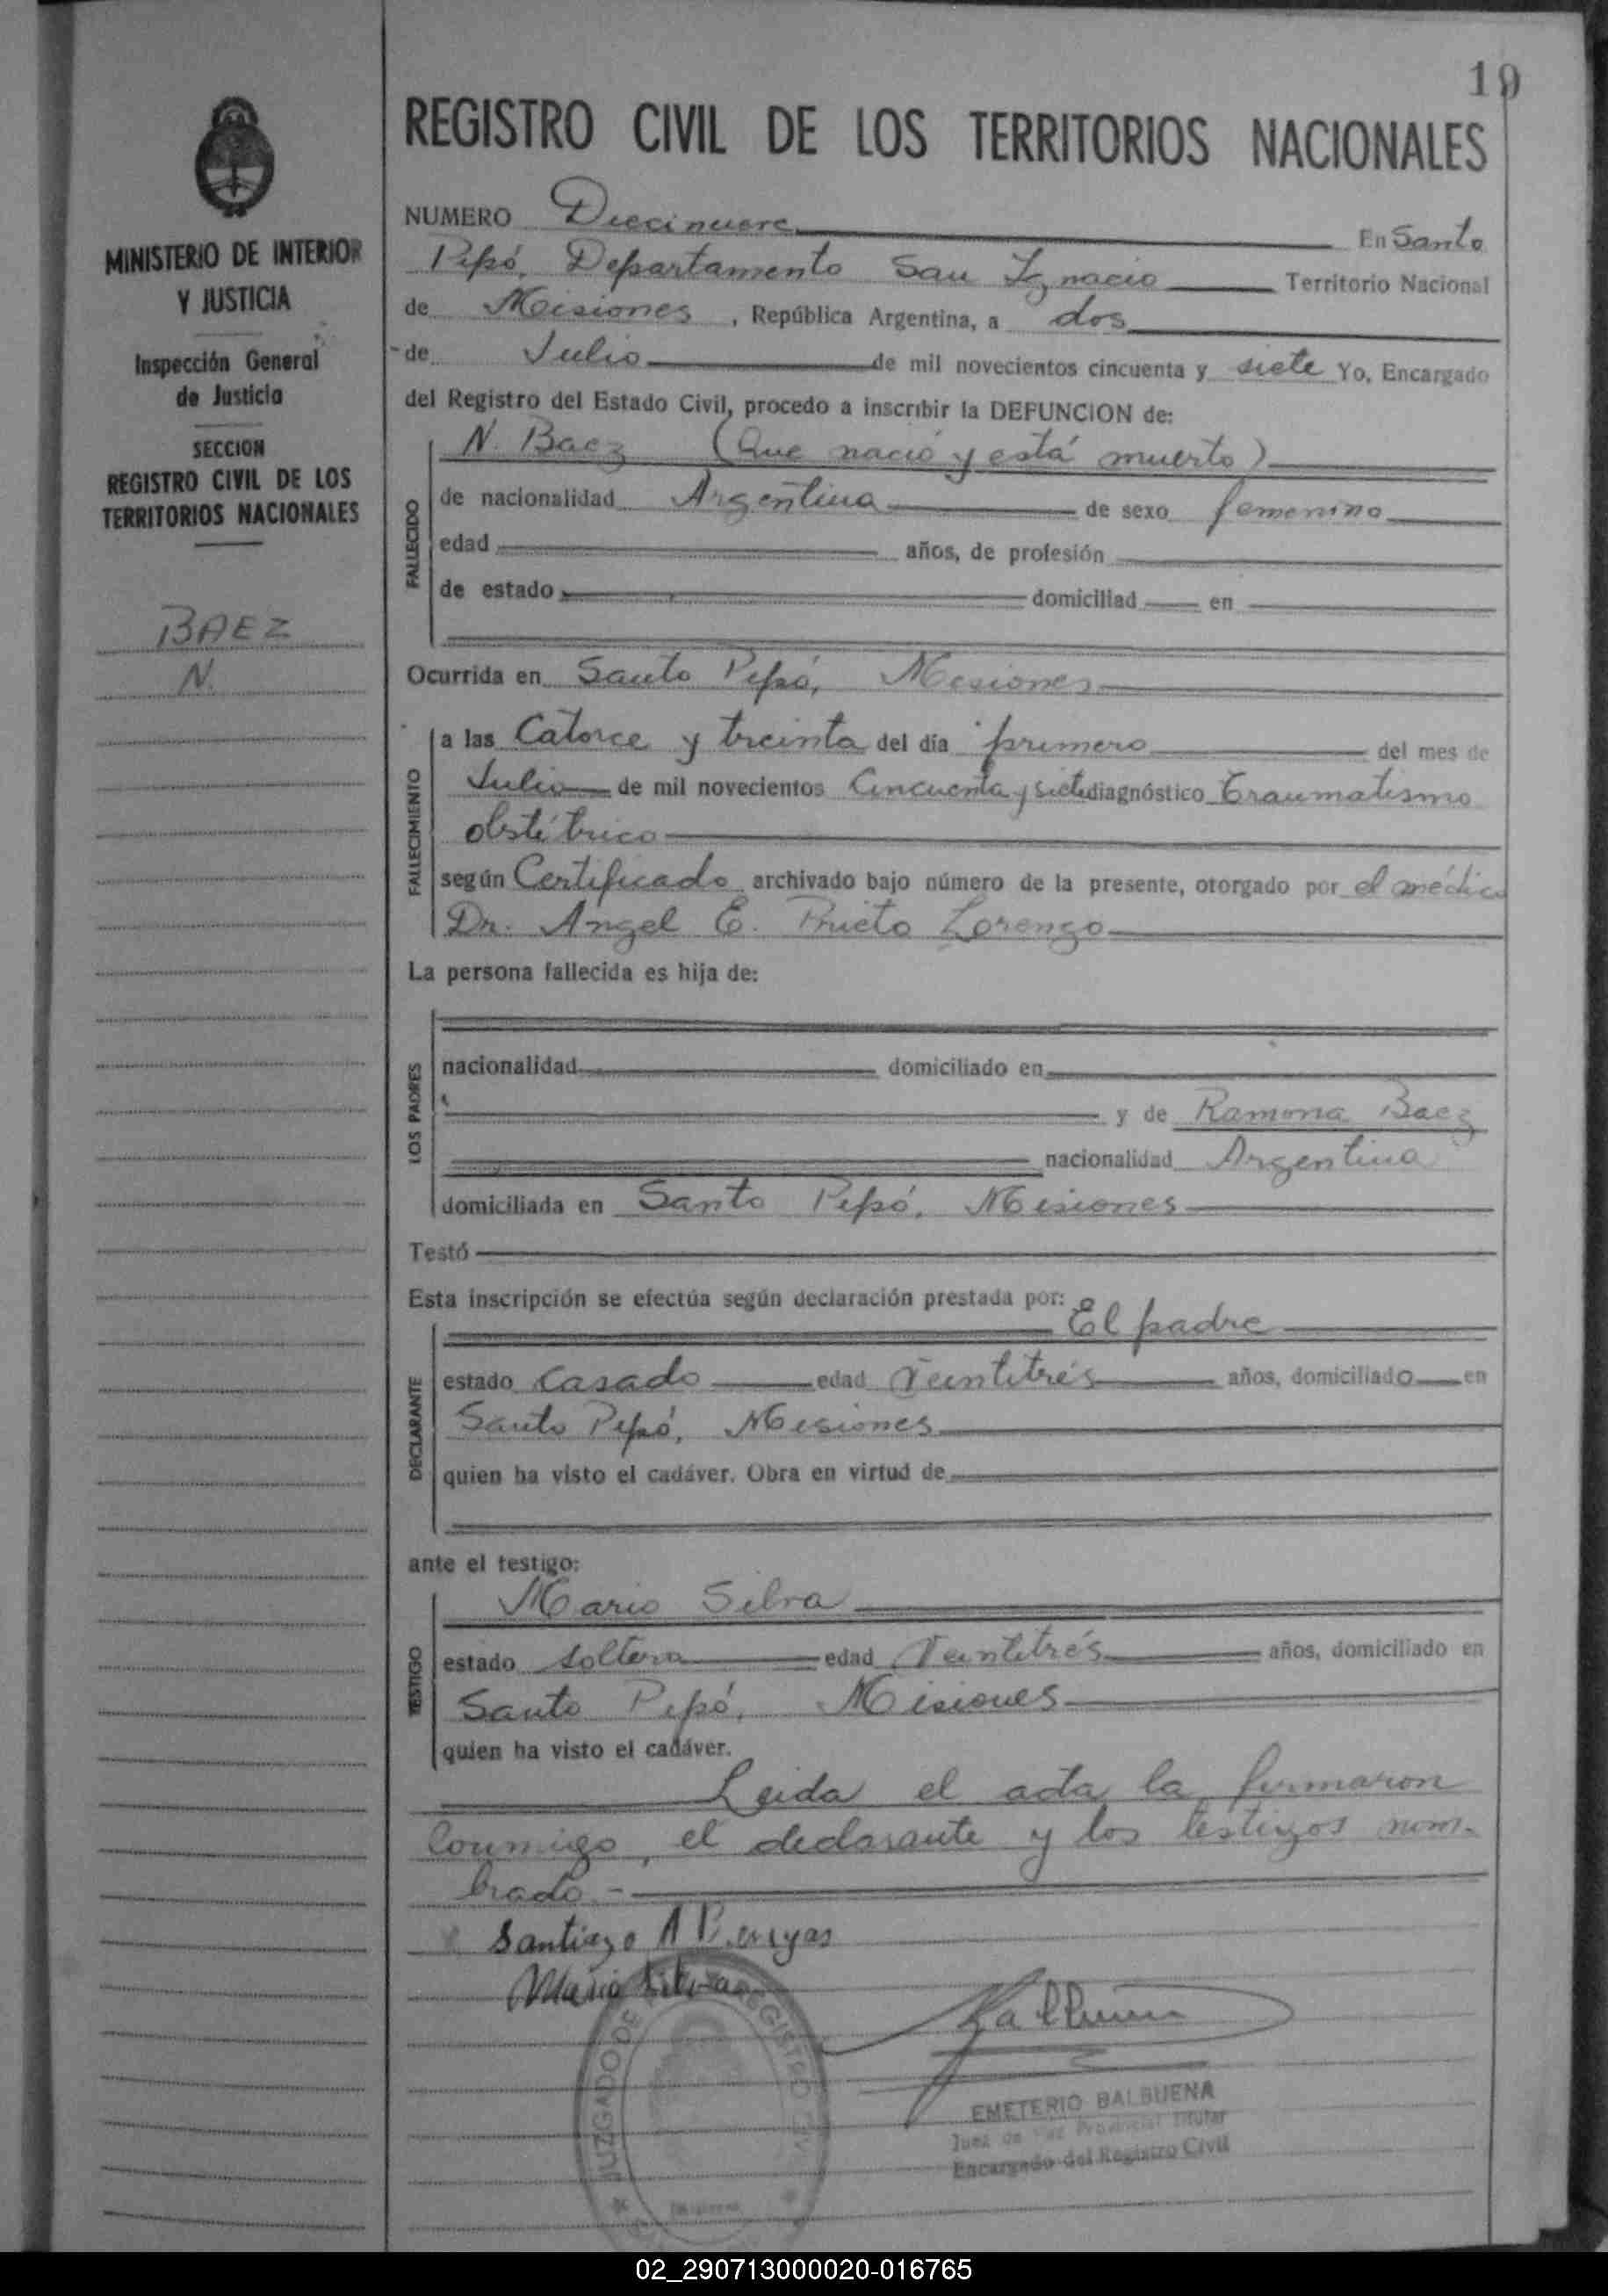 19
REGISTRO CIVIL DE LOS TERRITORIOS NACIONALES
MINISTERIO DE INTERIOR
Y JUSTICIA
Inspección General
de Justicia
SECCION
REGISTRO CIVIL DE LOS
TERRITORIOS NACIONALES
BAEZ
N.
NUMERO Diecinueve En Santo
Pipó, Departamento San Ignacio Territorio Nacional
de Misiones, República Argentina, a dos
de Julio de mil novecientos cincuenta y siete Yo, Encargado
del Registro del Estado Civil, procedo a inscribir la DEFUNCION de:
FALLECIDO
N. Baez (Que nació y está muerto)
de nacionalidad Argentina de sexo femenino
edad años, de profesión
de estado domiciliad en
Ocurrida en Santo Pipó, Misiones
FALLECIMIENTO
a las Catorce y treinta del día primero del mes de
Julio de mil novecientos Cincuenta y siete diagnóstico Traumatismo
obstétrico
según Certificado archivado bajo número de la presente, otorgado por el médico
Dr. Angel E. Prieto Lorenzo
La persona fallecida es hija de:
LOS PADRES
nacionalidad domiciliado en
y de Ramona Baez
nacionalidad Argentina
domiciliada en Santo Pipó, Misiones
Testó
Esta inscripción se efectúa según declaración prestada por:
DECLARANTE
El padre
estado Casado edad Veintitrés años, domiciliado en
Santo Pipó, Misiones
quien ha visto el cadáver. Obra en virtud de
ante el testigo:
TESTIGO
Mario Silva
estado soltero edad Veintitrés años, domiciliado en
Santo Pipó, Misiones
quien ha visto el cadáver.
Leida el acta la firmaron
conmigo, el declarante y los testigos nom-
brado.-
Santiago A
Mario Silva
JUZGADO DE REGISTRO
EMETERIO BALBUENA
Juez de Paz Provincial Titular
Encargado del Registro Civil
02_290713000020-016765